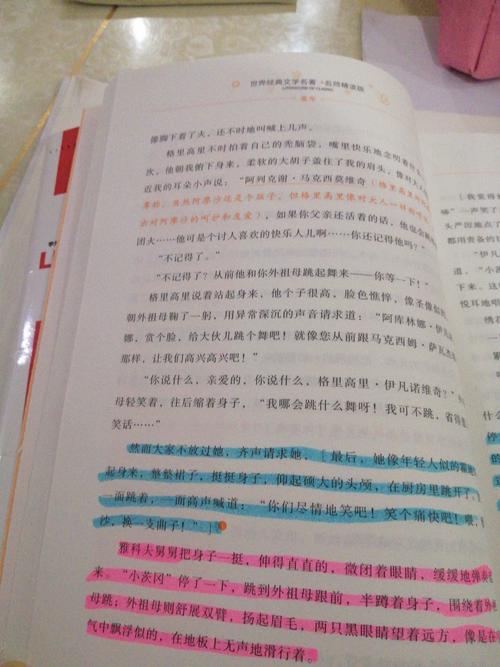 世界经典文学名著·名师精读版
LITERATURE OF CLASSIC
童年
像脚下着了火，还不时地叫喊上几声。
格里高里不时拍着自己的秃脑袋，嘴里快乐地念明着什
次，他朝我俯下身来，柔软的大胡子盖住了我的肩头，像对大人
近我的耳朵小声说：“阿列克谢·马克西莫维奇（格里高里
尊称，虽然阿廖沙还是个孩子，但格里高里像对大人一样
出对阿廖沙的呵护和友爱），如果你父亲还活着的话，他也会
团火……他可是个讨人喜欢的快乐人儿啊……你还记得他吗？”
“不记得了。”
“不记得了？从前他和你外祖母跳起舞来——你等一下！”
格里高里说着站起身来，他个子很高，脸色憔悴，像圣像
朝外祖母鞠了一躬，用异常深沉的声音请求道：“阿库林娜·伊凡
娜，赏个脸，给大伙儿跳个舞吧！就像您从前跟马克西姆·萨瓦杰
那样，让我们高兴高兴吧！”
“你说什么，亲爱的，你说什么，格里高里·伊凡诺维奇？”外
母轻笑着，往后缩着身子，“我哪会跳什么舞呀！我可不跳，省得
笑话……”
然而大家不放过她，齐声请求她，［最后，她像年轻人似的霍地
起身来，整整裙子，挺挺身子，仰起硕大的头颅，在厨房里跳开了，
一面跳着，一面高声喊道：“你们尽情地笑吧！笑个痛快吧！
沙，换一支曲子！”］
雅科夫舅舅把身子一挺，伸得直直的，微闭着眼睛，缓缓地弹奏
来。“小茨冈”停了一下，跳到外祖母跟前，半蹲着身子，围绕着外
母跳；外祖母则舒展双臂，扬起眉毛，两只黑眼睛望着远方，像是在
气中飘浮似的，在地板上无声地滑行着。